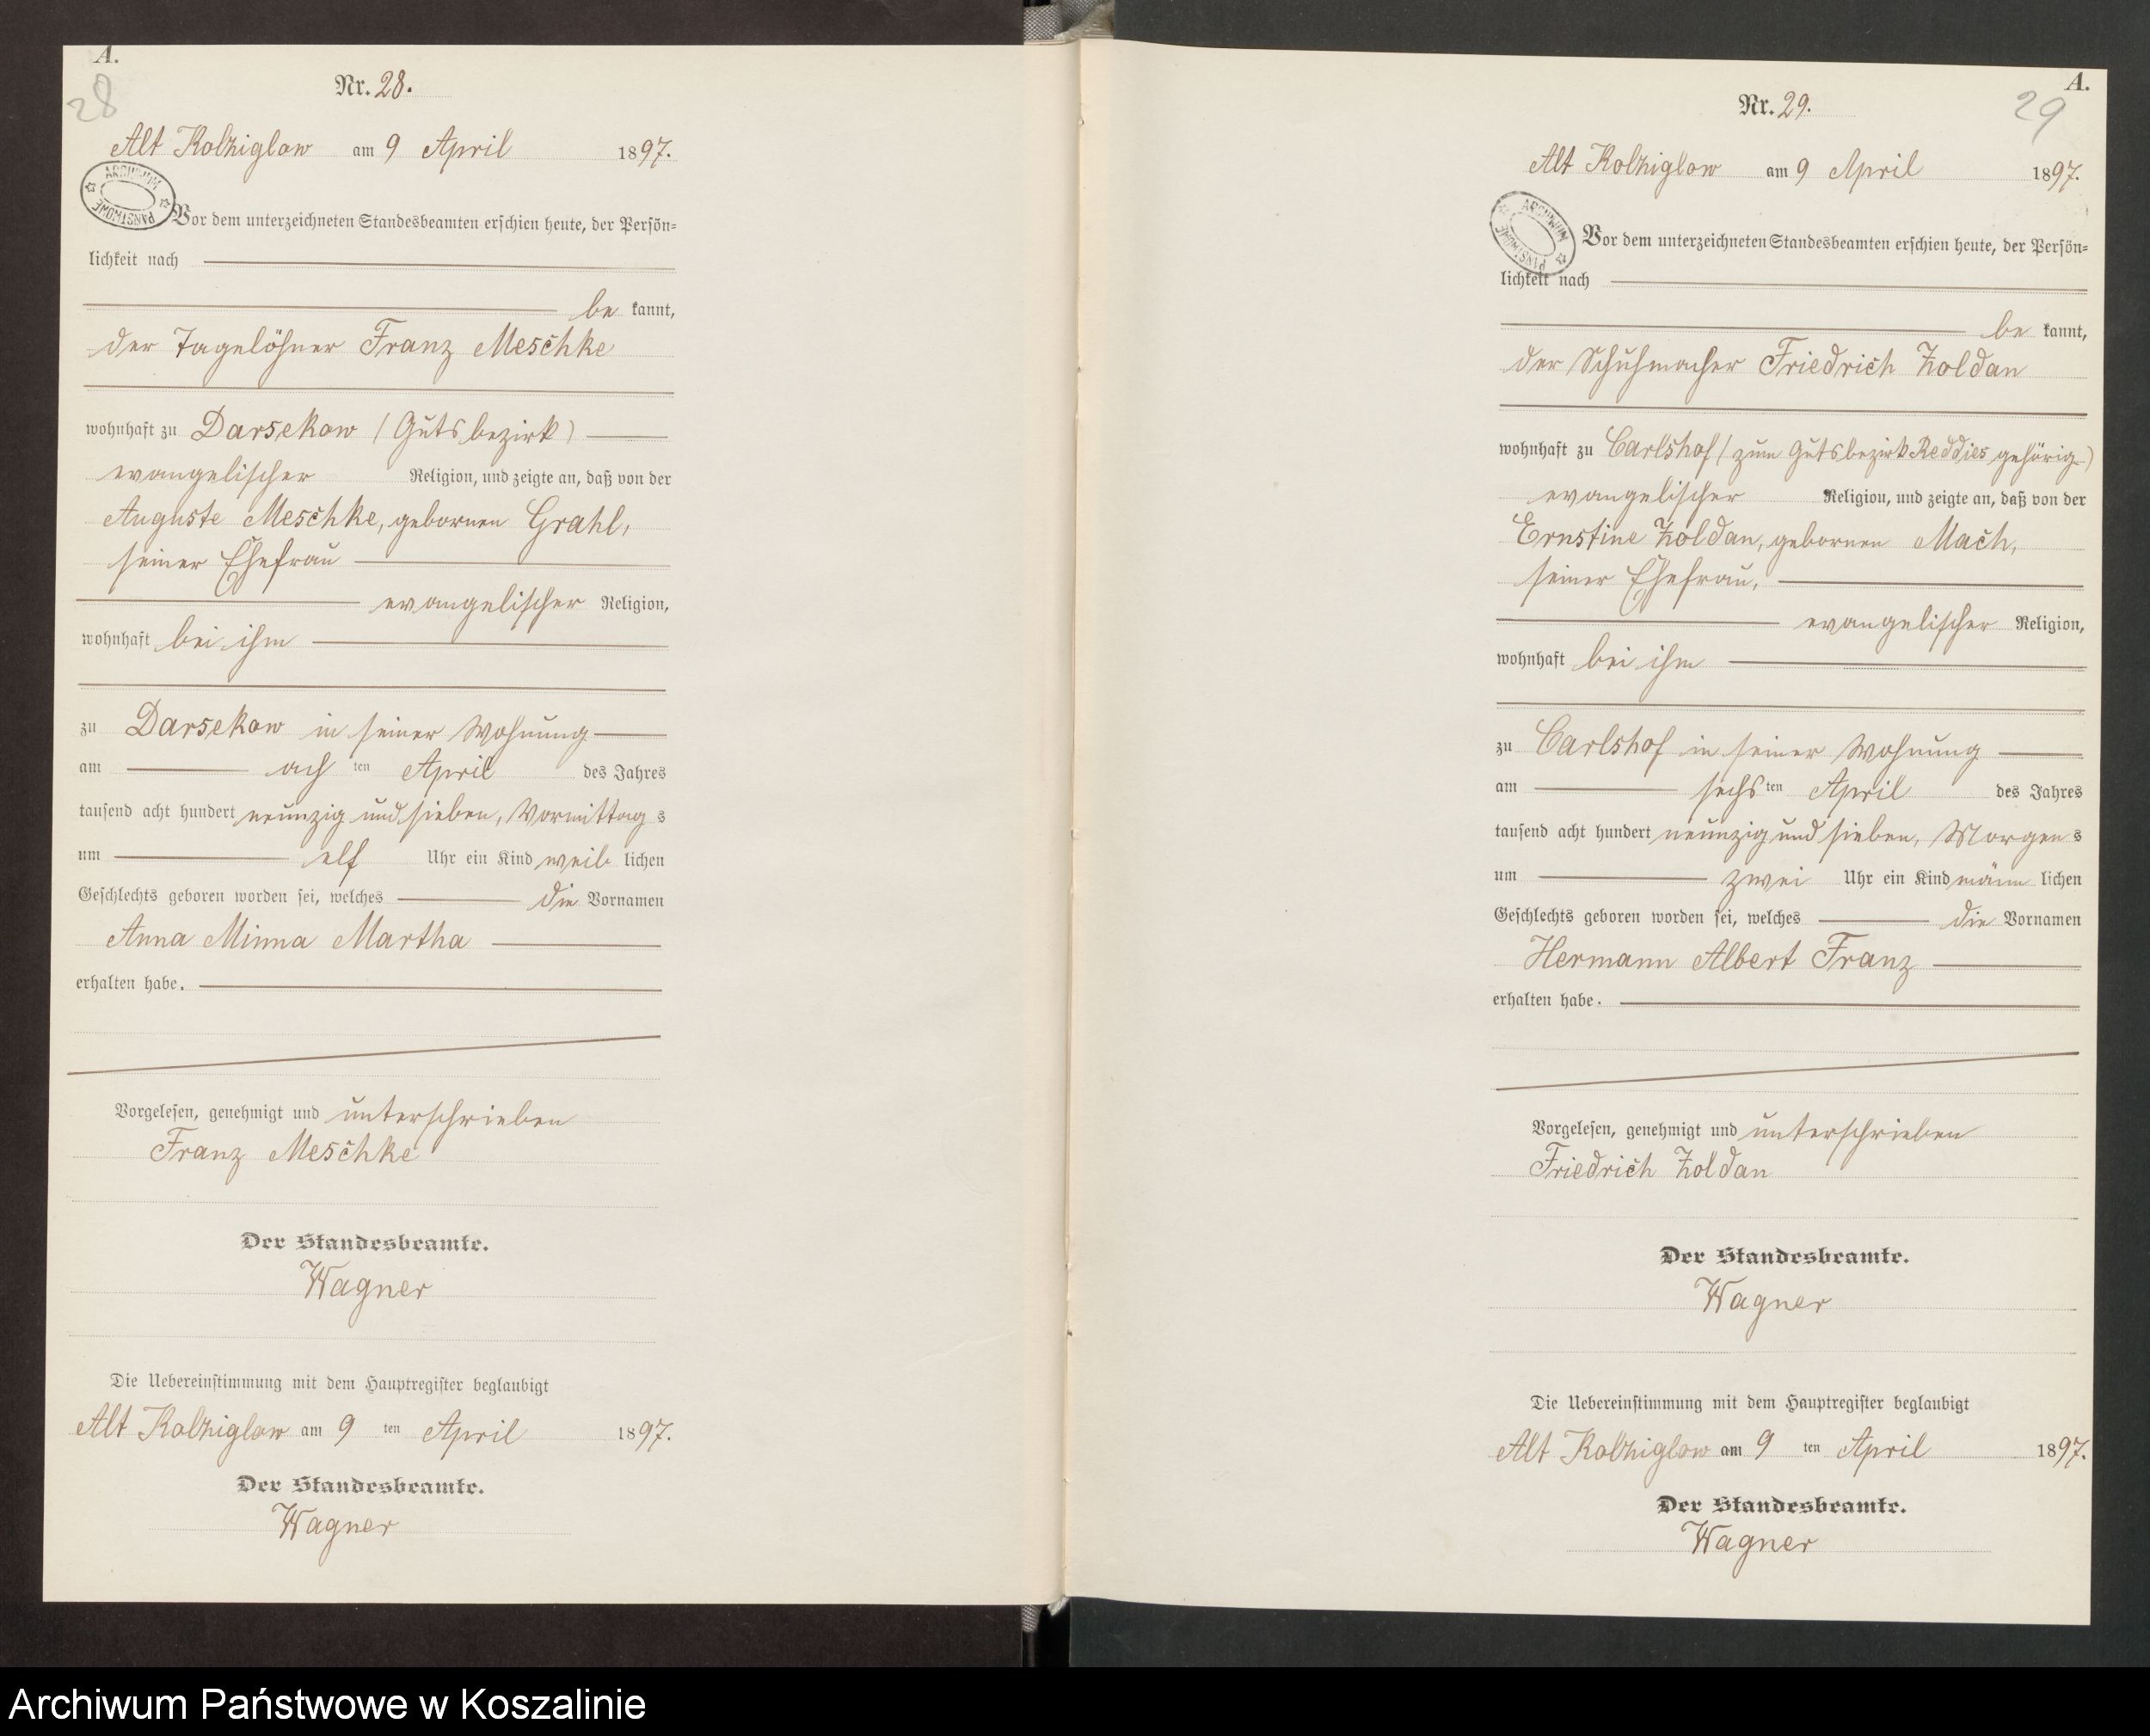 A.
28
Nr. 28.
Alt Kolziglow am 9 April 1897.
ARCHIWUM PAŃSTWOWE
Vor dem unterzeichneten Standesbeamten erschien heute, der Persön=
lichkeit nach
be kannt,
der Tagelöhner Franz Meschke
wohnhaft zu Darsekow (Gutsbezirk)
evangelischer Religion, und zeigte an, daß von der
Auguste Meschke, gebornen Grahl,
seiner Ehefrau
evangelischer Religion,
wohnhaft bei ihm
zu Darsekow in seiner Wohnung
am ach ten April des Jahres
tausend acht hundert neunzig und sieben, Vormittag s
um elf Uhr ein Kind weib lichen
Geschlechts geboren worden sei, welches die Vornamen
Anna Minna Martha
erhalten habe.
Vorgelesen, genehmigt und unterschrieben
Franz Meschke
Der Standesbeamte.
Wagner
Die Uebereinstimmung mit dem Hauptregister beglaubigt
Alt Kolziglow am 9 ten April 1897.
Der Standesbeamte.
Wagner
A.
29
Nr. 29.
Alt Kolziglow am 9 April 1897.
ARCHIWUM PAŃSTWOWE
Vor dem unterzeichneten Standesbeamten erschien heute, der Persön=
lichkeit nach
be kannt,
der Schuhmacher Friedrich Zoldan
wohnhaft zu Carlshof (zum Gutsbezirk Reddies gehörig)
evangelischer Religion, und zeigte an, daß von der
Ernstine Zoldan, gebornen Mach,
seiner Ehefrau,
evangelischer Religion,
wohnhaft bei ihm
zu Carlshof in seiner Wohnung
am sechs ten April des Jahres
tausend acht hundert neunzig und sieben, Morgen s
um zwei Uhr ein Kind männ lichen
Geschlechts geboren worden sei, welches die Vornamen
Hermann Albert Franz
erhalten habe.
Vorgelesen, genehmigt und unterschrieben
Friedrich Zoldan
Der Standesbeamte.
Wagner
Die Uebereinstimmung mit dem Hauptregister beglaubigt
Alt Kolziglow am 9 ten April 1897.
Der Standesbeamte.
Wagner
Archiwum Państwowe w Koszalinie